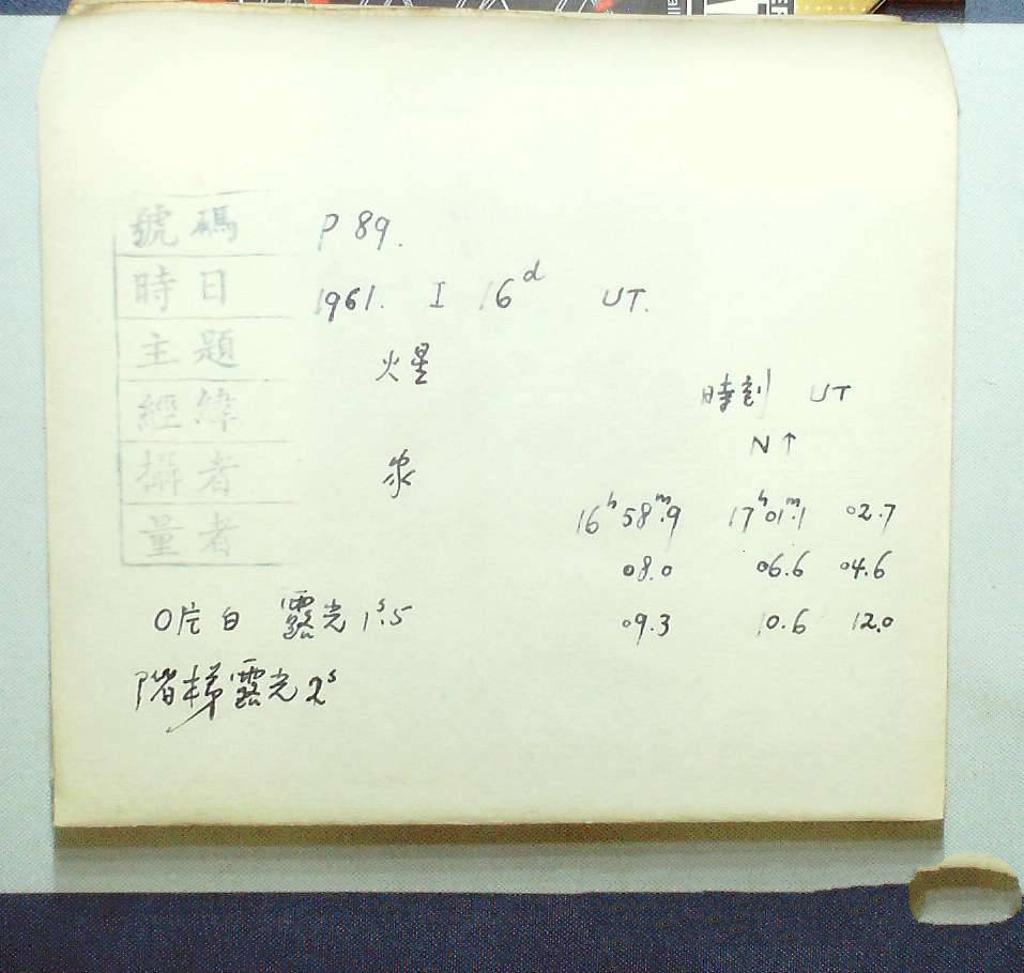 號碼 P 89.
時日 1961. I 16d UT.
主題 火星
經緯
攝者
量者
時刻 UT
N↑
16h58m.9 17h01m.1 02.7
08.0 06.6 04.6
09.3 10.6 12.0
O片白 露光 1s.5
階梯露光 2s